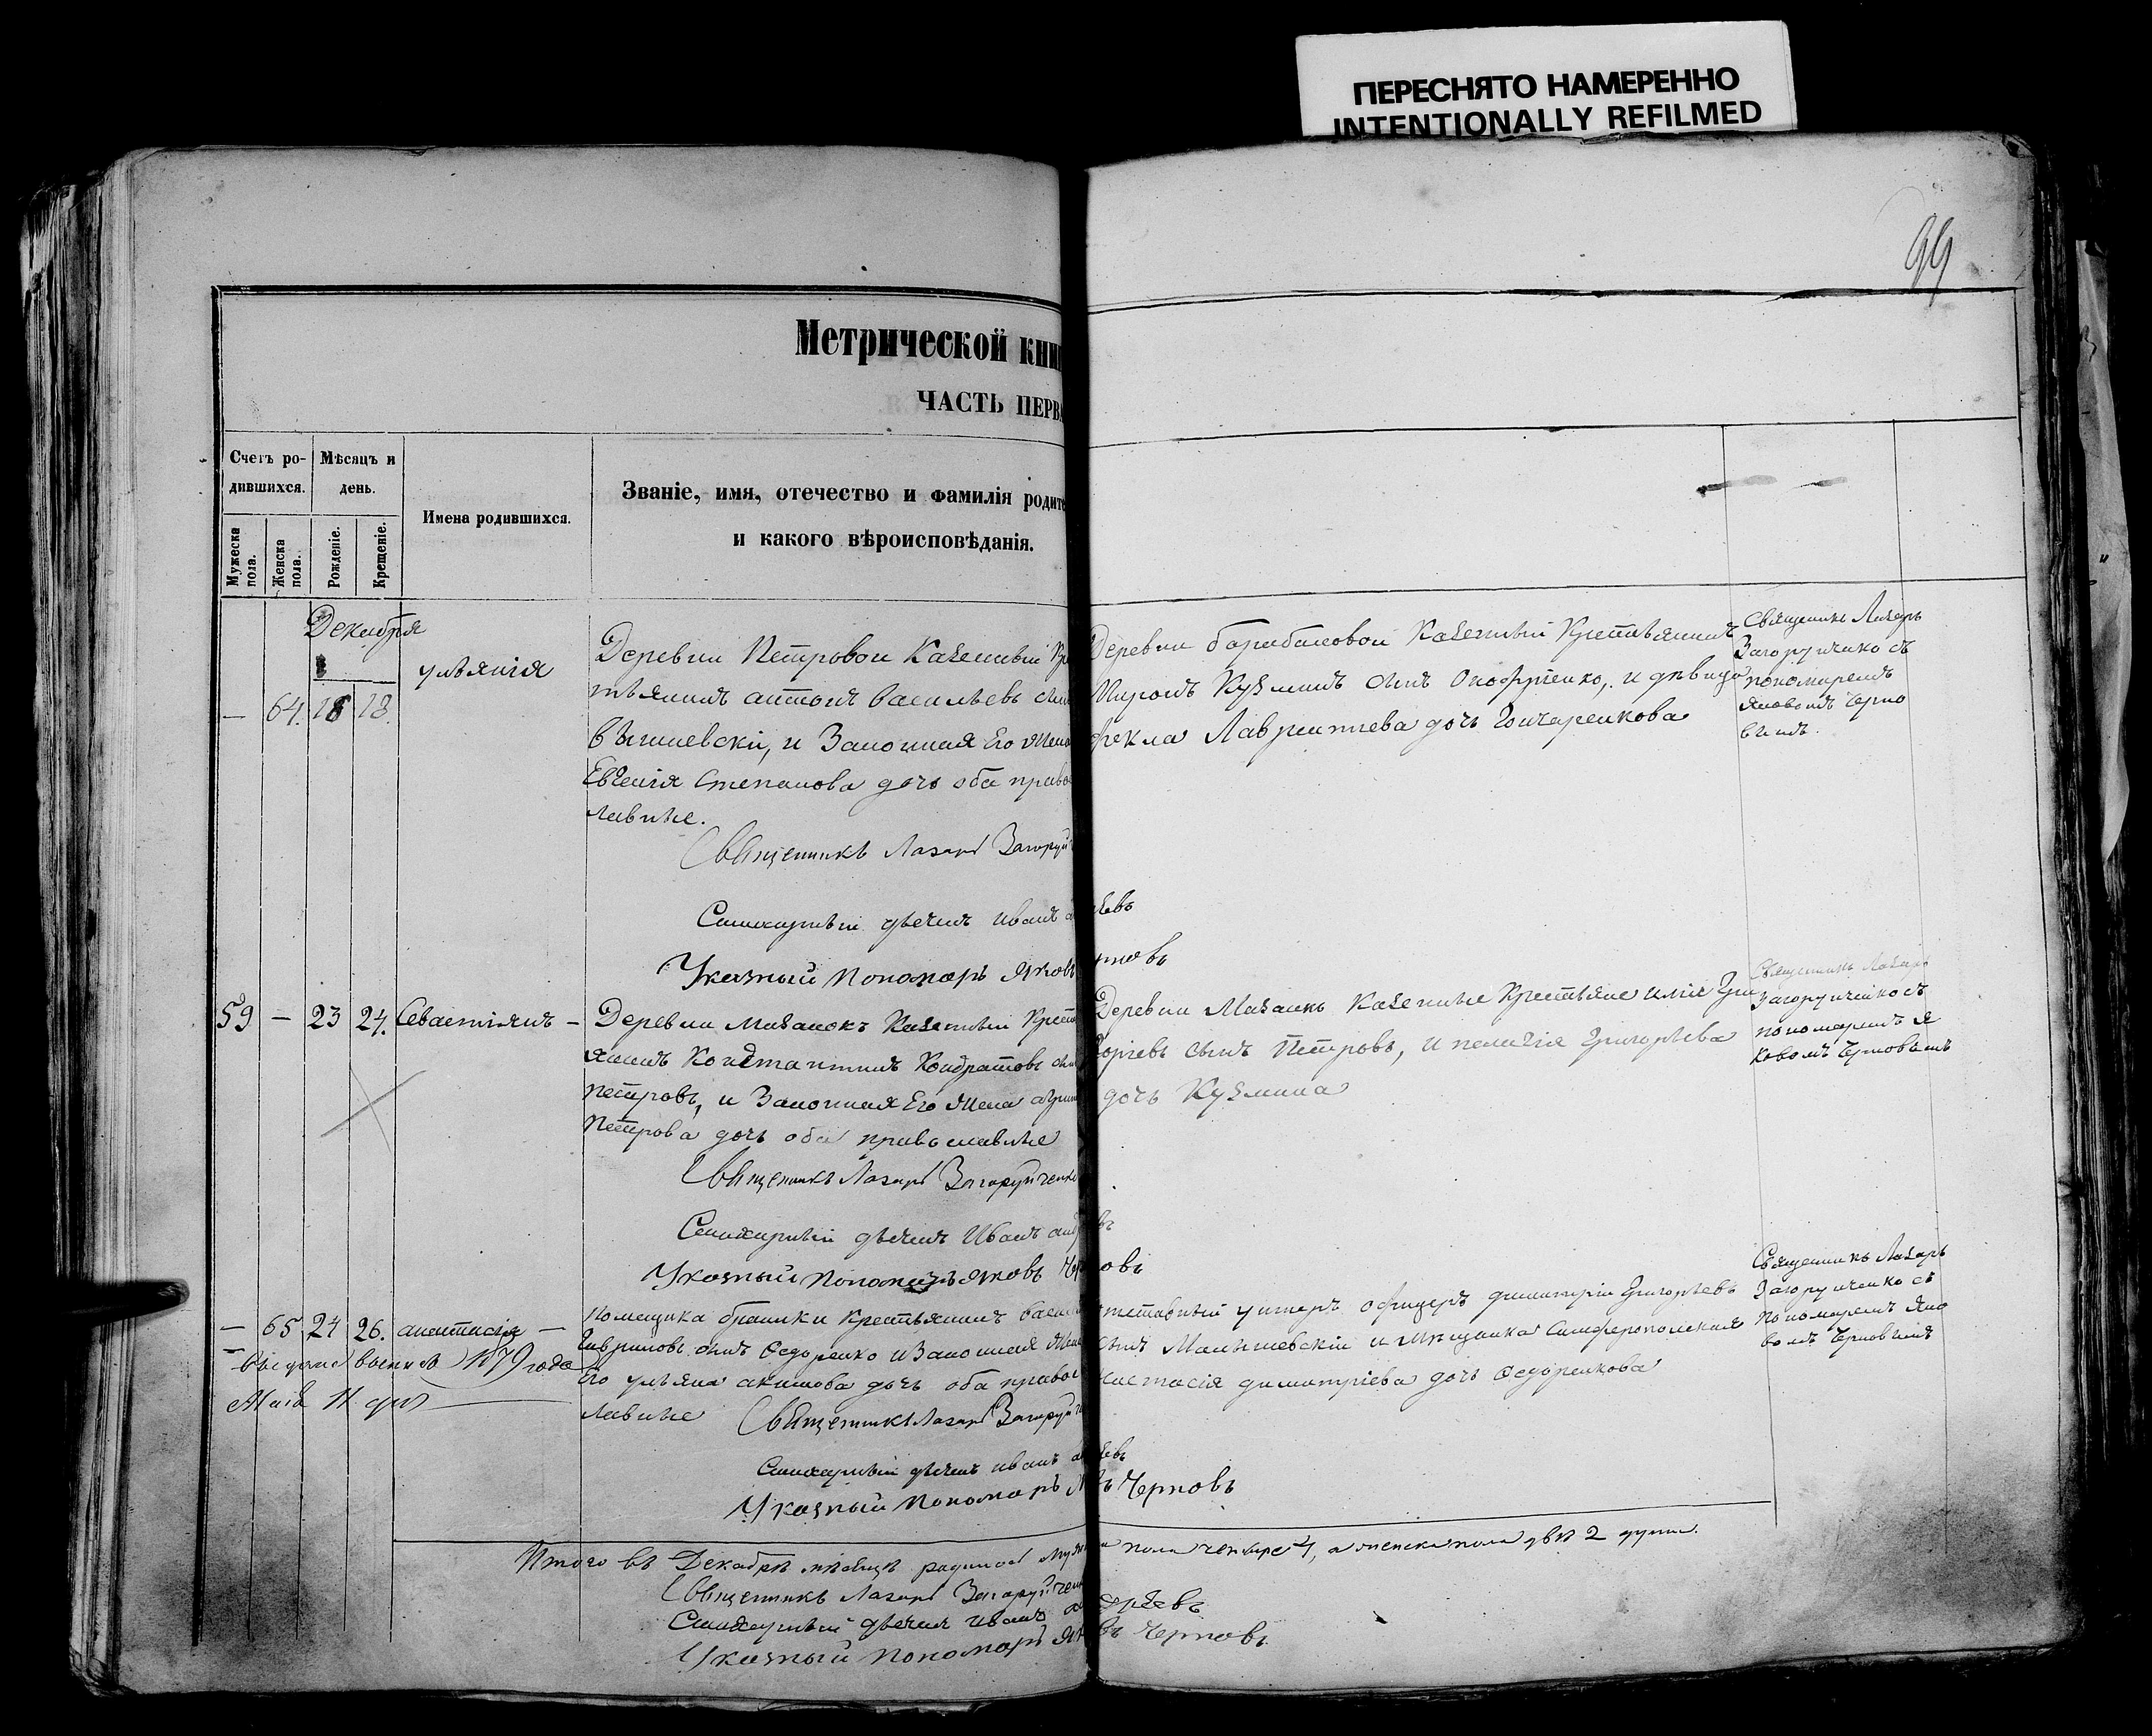 ПЕРЕСНЯТО НАМЕРЕННО
INTENTIONALLY REFILMED
99
Метрической кни
ЧАСТЬ ПЕРВА
Счетъ ро-
дившихся.
Мѣсяцъ и
день.
Мужеска
пола.
Женска
пола.
Рожденіе.
Крещеніе.
Имена родившихся.
Званіе, имя, отечество и фамилія родите
и какого вѣроисповѣданія.
Декабря
— 64. 18 18.
Деревни Петровой Казенный Кре
тьянинъ антонъ васильевъ сын
и Законная Его Жена
Евгенія Степанова дочь оба право
славные.
Священникъ Лазарь Загоруйч
дьячекъ Иванъ
Указный Пономарь Яковъ
Деревни Казенный Крестьянинъ
Миронъ Кузминъ сынъ Онофріенко, и дѣвица
фекла Лаврентьева дочь Гончаренкова
Священникъ Лазарь
Загоруйченко съ
пономаремъ
Яковомъ Черно
вымъ.
рновъ
59 — 23 24. Севастіянъ —
Деревни Мазанокъ Казенный Крест
янинъ Константинъ Кондратовъ сын
Петровъ, и Законная Его Жена
Петрова дочь оба православные
Священникъ Лазарь Загоруйченко
дьячекъ Иванъ анд
Указный Пономарь Яковъ Чер
Деревни Мазанкъ Казенные Крестьяне Гри
горіевъ сынъ Петровъ, и пелагія Григорьева
дочь Кузмина
Священникъ Лазарь
Загоруйченко съ
пономаремъ Я
ковомъ Черновымъ
новъ
— 65 24 26. анастасія —
1879 года
Маія 11 дня
помещика Крестьянинъ васил
Гавриловъ сынъ Федоренко и Законная Жена
Его ульяна акимова дочь оба правос
лавные Священникъ Лазарь Загоруйч
дьячекъ Иванъ
Указный Пономарь
отставный унтеръ офицеръ димитрій Григорьевъ
сынъ Малышевскій и Мѣщанка Симферопольская
настасія димитріева дочь Федоренкова
Священникъ Лазарь
Загоруйченко съ
Пономаремъ Яко
вомъ Черновымъ
въ Черновъ
Итого въ Декабрѣ мѣсяцѣ родилось Мужес
ка пола четыре 4, а женска пола двѣ 2 души.
Священникъ Лазарь Загоруйчен
дьячекъ Иванъ
Указный Пономарь Як
въ Черновъ